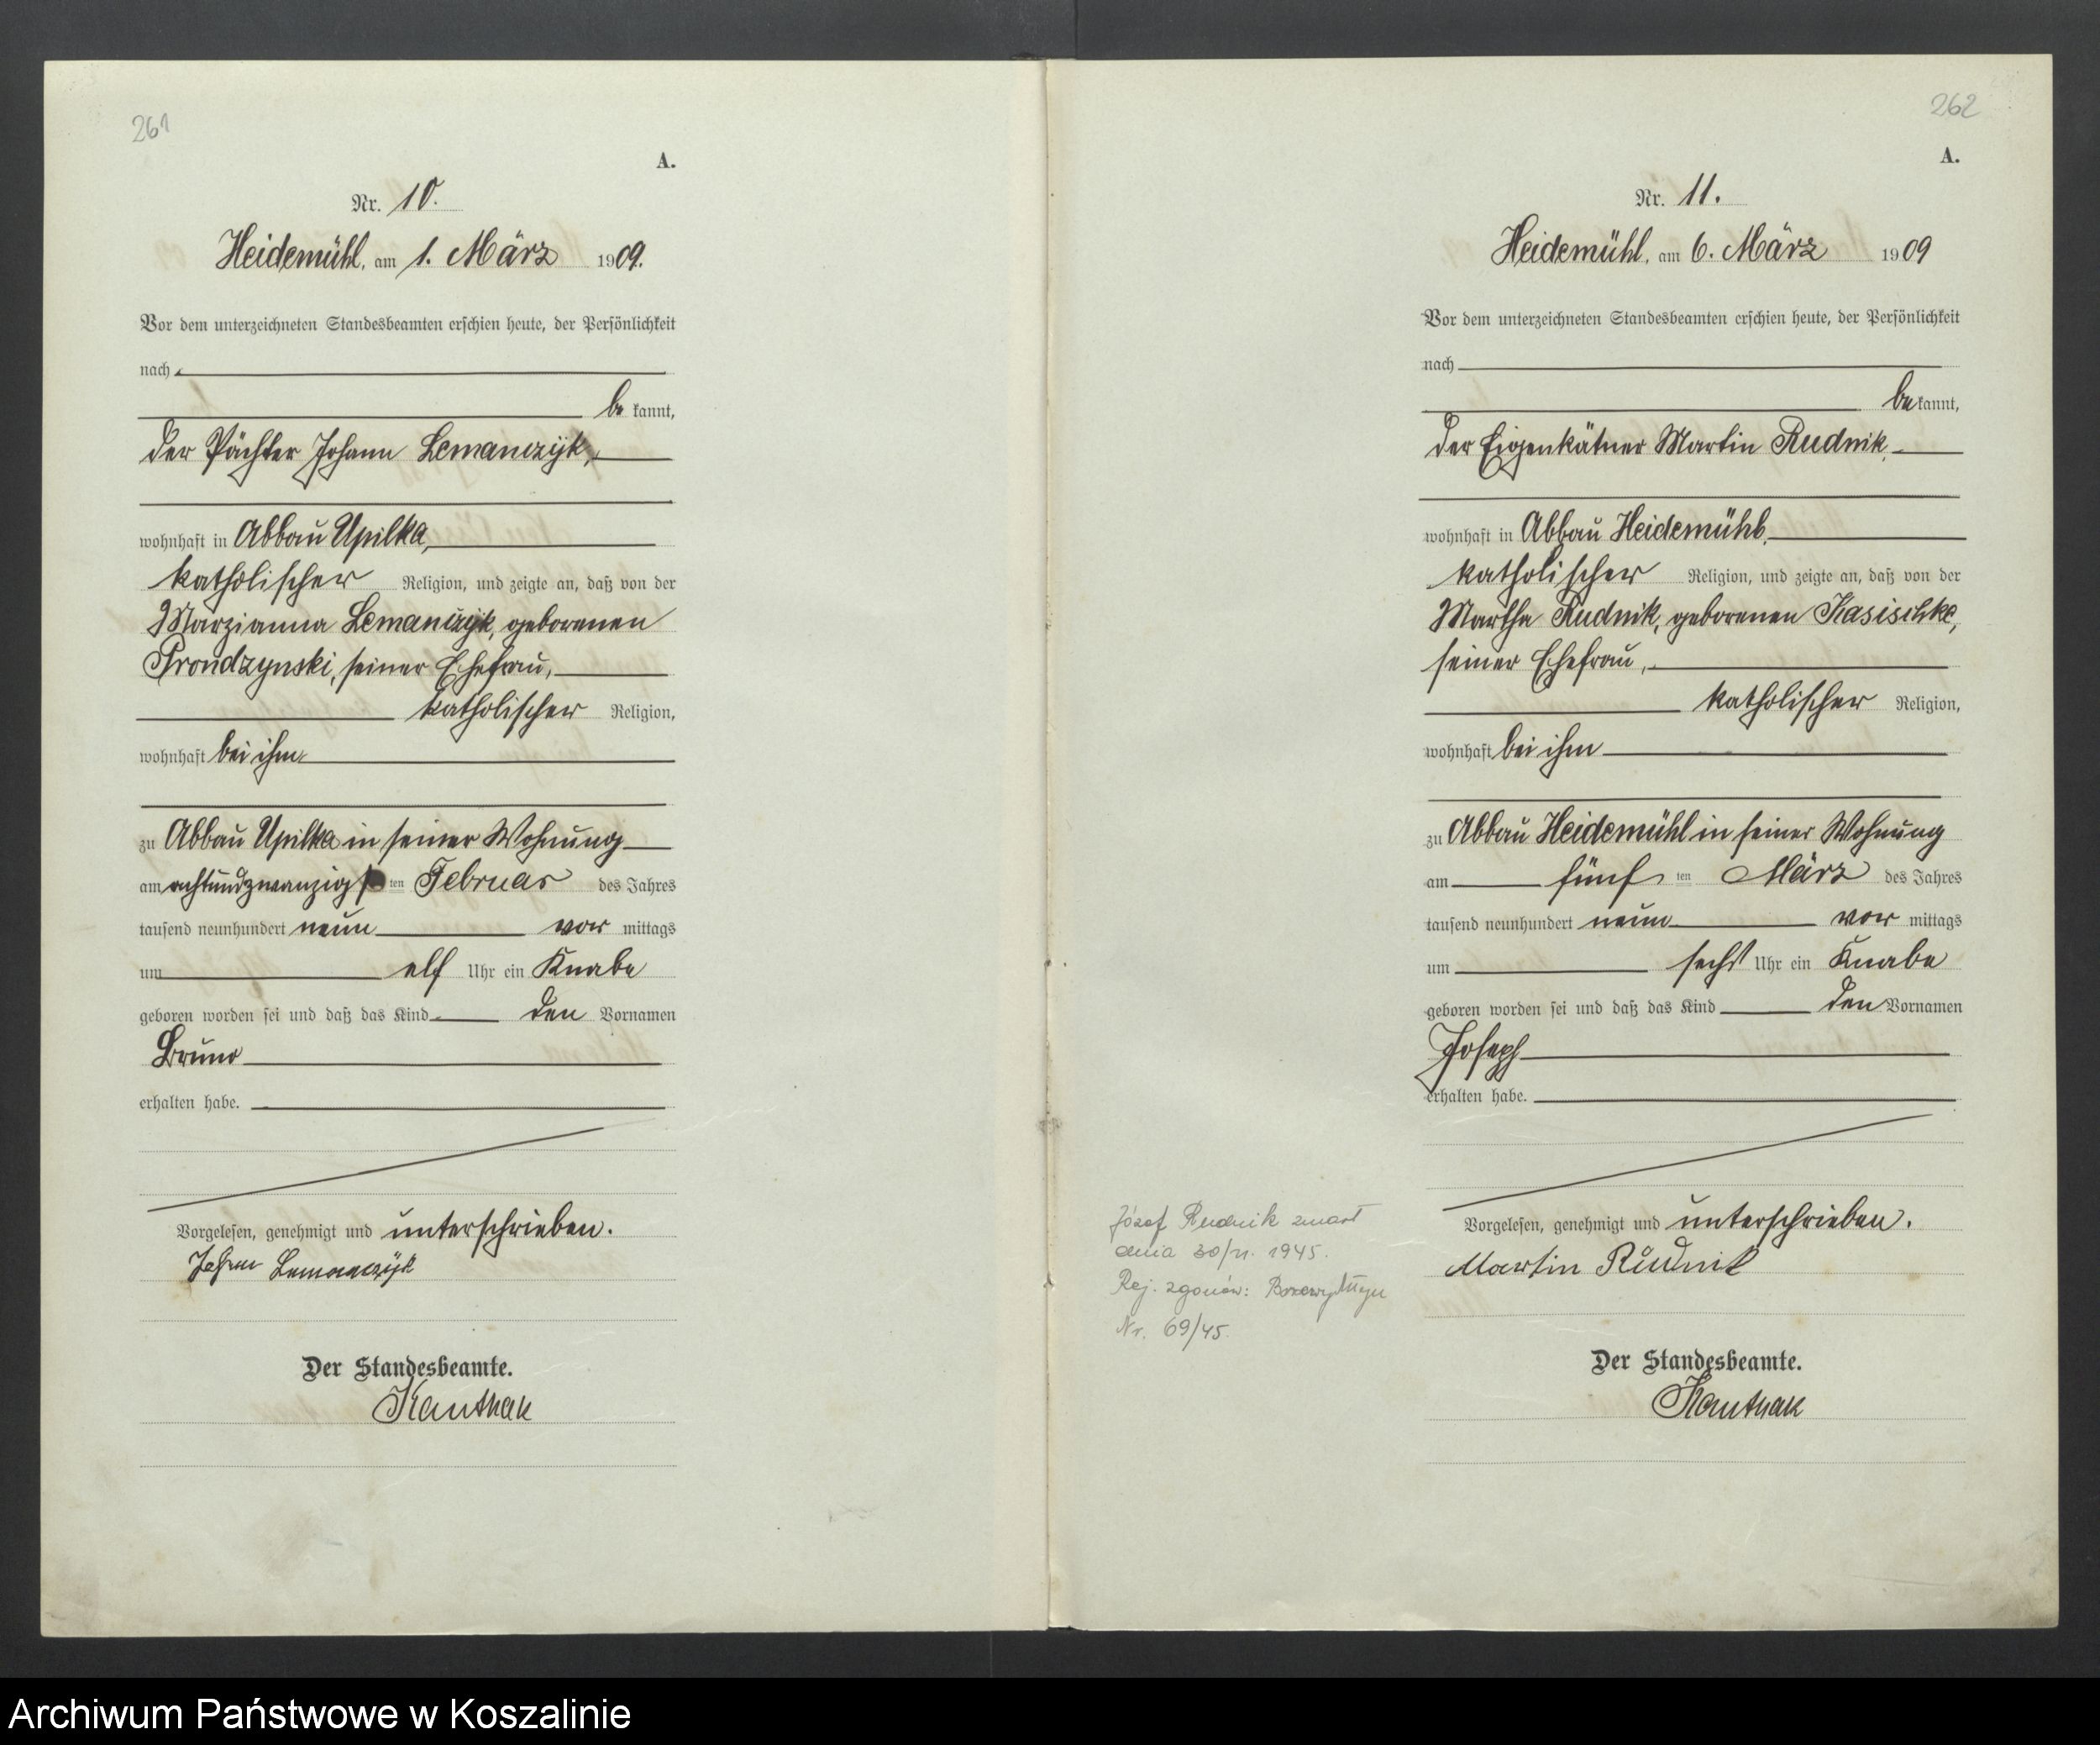 261
A.
Nr. 10.
Heidemühl, am 1. März 1909.
Vor dem unterzeichneten Standesbeamten erschien heute, der Persönlichkeit
nach
be kannt,
der Pächter Johann Lemanczyk,
wohnhaft in Abbau Upilka,
katholischer Religion, und zeigte an, daß von der
Marzianna Lemanczyk, geborenen
Prondzynski, seiner Ehefrau,
katholischer Religion,
wohnhaft bei ihm
zu Abbau Upilka in seiner Wohnung
am achtundzwanzigsten Februar des Jahres
tausend neunhundert neun vor mittags
um elf Uhr ein Knabe
geboren worden sei und daß das Kind den Vornamen
Bruno
erhalten habe.
Vorgelesen, genehmigt und unterschrieben.
Johann Lemanczyk
Der Standesbeamte.
Kauthak
262
A.
Nr. 11.
Heidemühl, am 6. März 1909
Vor dem unterzeichneten Standesbeamten erschien heute, der Persönlichkeit
nach
be kannt,
der Eigenkätner Martin Rudnik,
wohnhaft in Abbau Heidemühl,
katholischer Religion, und zeigte an, daß von der
Martha Rudnik, geborenen Kasischke,
seiner Ehefrau,
katholischer Religion,
wohnhaft bei ihm
zu Abbau Heidemühl in seiner Wohnung
am fünf ten März des Jahres
tausend neunhundert neun vor mittags
um sechs Uhr ein Knabe
geboren worden sei und daß das Kind den Vornamen
Joseph
erhalten habe.
Vorgelesen, genehmigt und unterschrieben.
Martin Rudnik
Der Standesbeamte.
Kauthak
Józef Rudnik zmarł
dnia 30/ 1945.
Rej. zgonów:
Nr. 69/45.
Archiwum Państwowe w Koszalinie